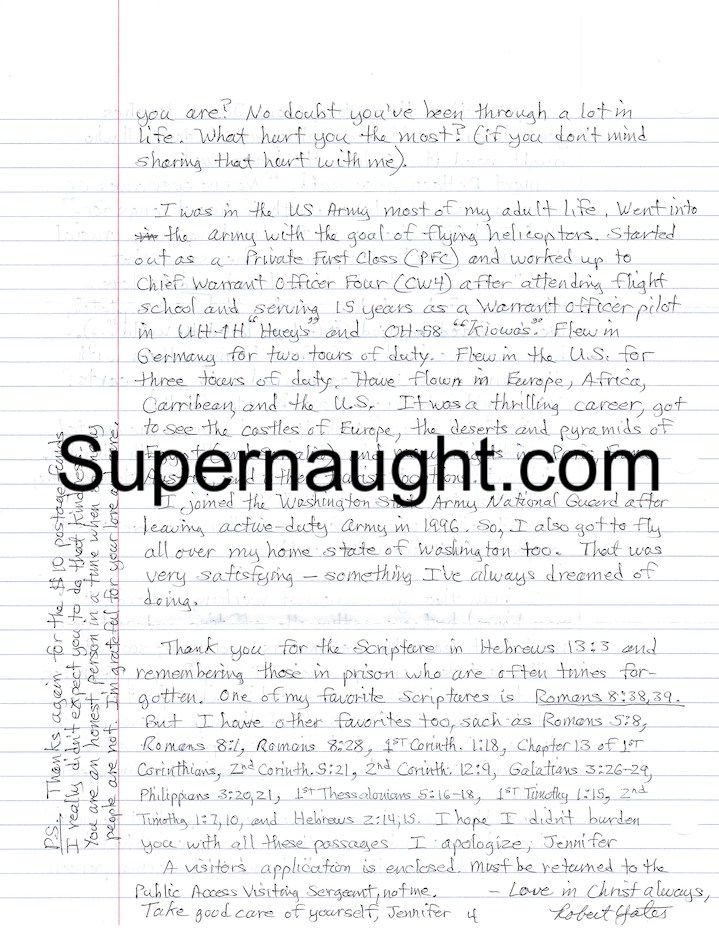 you are? No doubt you've been through a lot in
life. What hurt you the most? (if you don't mind
sharing that hurt with me).
I was in the US Army most of my adult life. Went into
the army with the goal of flying helicopters. Started
out as a Private First Class (PFC) and worked up to
Chief Warrant Officer Four (CW4) after attending flight
school and serving 15 years as a Warrant Officer pilot
in UH-1H "Huey's" and OH-58 "Kiowas". Flew in
Germany for two tours of duty. Flew in the U.S. for
three tours of duty. Have flown in Europe, Africa,
Carribean, and the U.S. It was a thrilling career, got
to see the castles of Europe, the deserts and pyramids of
Supernaught.com
I joined the Washington State Army National Guard after
leaving active-duty Army in 1996. So, I also got to fly
all over my home state of Washington too. That was
very satisfying – something I've always dreamed of
doing.
Thank you for the Scripture in Hebrews 13:3 and
remembering those in prison who are often times for-
gotten. One of my favorite Scriptures is Romans 8:38,39.
But I have other favorites too, such as Romans 5:8,
Romans 8:1, Romans 8:28, 1ST Corinth. 1:18, Chapter 13 of 1ST
Corinthians, 2nd Corinth. 5:21, 2nd Corinth. 12:9, Galatians 3:26-29,
Philippians 3:20,21, 1ST Thessalonians 5:16-18, 1ST Timothy 1:15, 2nd
Timothy 1:7,10, and Hebrews 2:14,15. I hope I didn't burden
you with all these passages I apologize, Jennifer
A visitors application is enclosed. Must be returned to the
Public Access Visiting Sergeant, not me. – Love in Christ always,
Take good care of yourself, Jennifer 4 Robert Yates
P.S. Thanks again for the $10 postage funds
I really didn't expect you to do that kindness
You are an honest person in a time when so many
people are not. I'm grateful for your love and care.